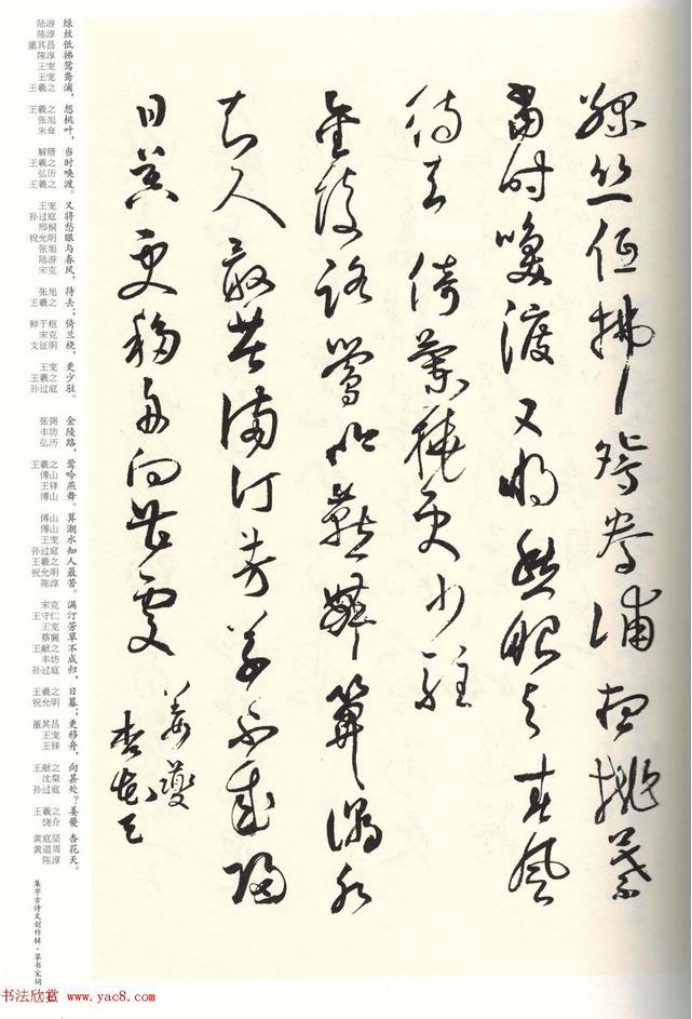 綠絲低拂鴛鴦浦想桃葉
當时喚渡又将愁眼与春風
待去倚蘭橈更少駐
金陵路鶯吟燕舞算潮水
知人最苦满汀芳草不成歸
日暮更移舟向甚處
姜夔
杏花天
绿丝低拂鸳鸯浦，想桃叶，当时唤渡。又将愁眼与春风，待去；倚兰桡，更少驻。金陵路，莺吟燕舞。算潮水知人最苦。满汀芳草不成归，日暮；更移舟，向甚处？姜夔 杏花天。
陆游 陈淳 董其昌 陈淳 王宠 王宠 王羲之 王羲之 张旭 朱耷 解缙 王羲之 弘历 王羲之 王宠 孙过庭 邢侗 祝允明 张旭 陆游 宋克 张旭 王羲之 鲜于枢 宋克 文征明 王宠 王羲之 孙过庭 张弼 丰坊 弘历 王羲之 傅山 王铎 傅山 傅山 傅山 王宠 孙过庭 王羲之 祝允明 陈淳 宋克 王守仁 王宠 蔡襄 王献之 丰坊 孙过庭 王羲之 祝允明 董其昌 王宠 王铎 王献之 沈粲 孙过庭 王羲之 饶介 黄庭坚 黄道周 陈淳
集字古诗文创作辑·草书宋词
书法欣赏 www.yac8.com